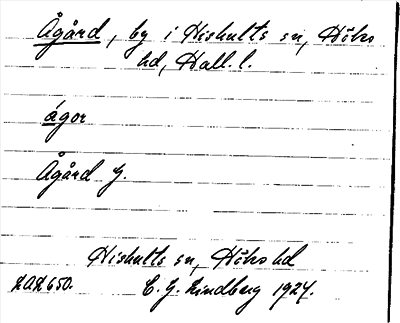 Ågård, by i Hishults sn, Höks
hd, Hall. l.
ágor
Ågård G.
Hishults sn, Höks hd
LAL 650. E. G. Lindberg 1927.